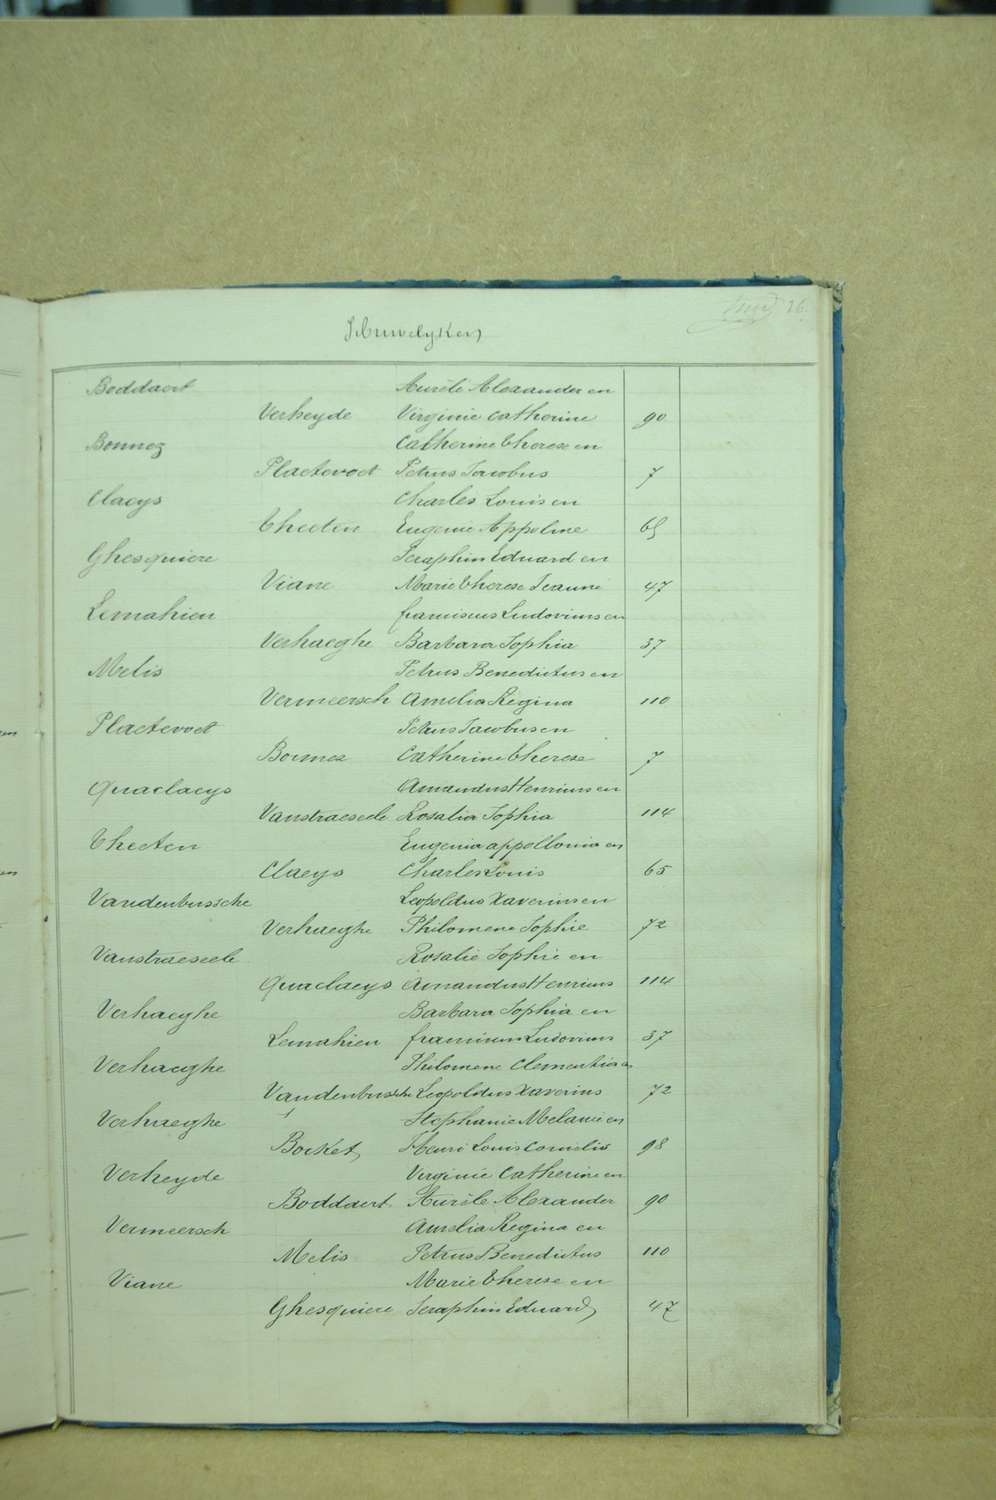 Huwelijken
26.
Boddaert Aurèle Alexander en
Verheyde Virginie Catherine 90
Bonnez Catherine Therese en
Plaetevoet Petrus Jacobus 7
Claeys Charles Louis en
Theeten Eugenie Appoline 65
Ghesquiere Seraphin Eduard en
Viane Marie Therese Jeanne 47
Lemahieu franciscus Ludovicus en
Verhaeghe Barbara Sophia 37
Melis Petrus Benedictus en
Vermeersch Amelia Regina 110
Plaetevoet Petrus Jacobus en
Bonnez Catherine Therese 7
Quaclaeys Amandus Henricus en
Vanstraeseele Rosalia Sophia 114
Theeten Eugenia appollonia en
Claeys Charles Louis 65
Vandenbussche Leopoldus Xaverius en
Verhaeghe Philomene Sophie 72
Vanstraeseele Rosalie Sophie en
Quaclaeys Amandus Henricus 114
Verhaeghe Barbara Sophia en
Lemahieu franciscus Ludovicus 37
Verhaeghe Philomene Clementia en
Vandenbussche Leopoldus Xaverius 72
Verhaeghe Stephanie Melanie en
Bocket Henri Louis Cornelis 98
Verheyde Virginie Catherine en
Boddaert Aurèle Alexander 90
Vermeersch Amelia Regina en
Melis Petrus Benedictus 110
Viane Marie Therese en
Ghesquiere Seraphin Eduard 47